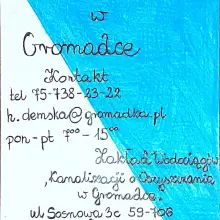 w
Gromadce
Kontakt
tel 75-738-23-22
k.demska@gromadka.pl
pon-pt 7⁰⁰ - 15⁰⁰
Zakład Wodociągów
,Kanalizacji i Oczyszczania
w Gromadce.
ul Sosnowa 3c 59-706